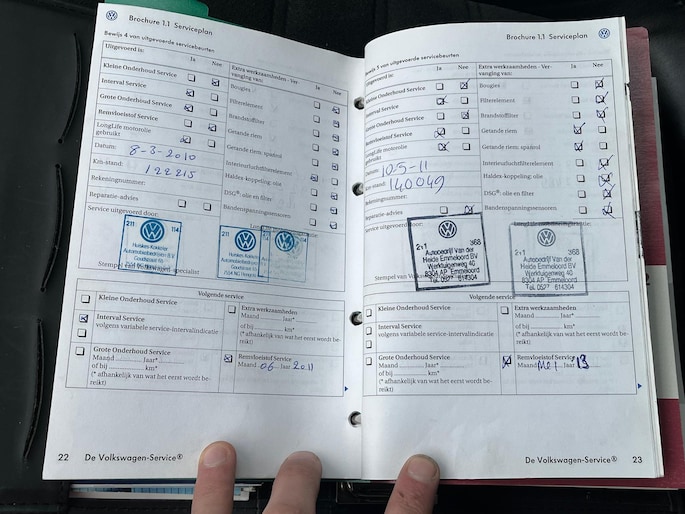 Brochure 1.1 Serviceplan
Bewijs 4 van uitgevoerde servicebeurten
Uitgevoerd is: Ja Nee
Extra werkzaamheden - Ver-
vanging van: Ja Nee
Kleine Onderhoud Service
Interval Service
Grote Onderhoud Service
Remvloeistof Service
LongLife motorolie
gebruikt
Datum: 8-3-2010
Km-stand: 122215
Rekeningnummer:
Reparatie-advies
Bougies
Filterelement
Brandstoffilter
Getande riem
Getande riem: spanrol
Interieurluchtfilterelement
Haldex-koppeling: olie
DSG®: olie en filter
Bandenspanningssensoren
Service uitgevoerd door:
211 114
211
Stempel van Volkswagen specialist
Volgende service
Kleine Onderhoud Service
Interval Service
volgens variabele service-intervalindicatie
Grote Onderhoud Service
Maand Jaar*
of bij km*
(* afhankelijk van wat het eerst wordt be-
reikt)
Extra werkzaamheden
Maand Jaar*
of bij km*
(* afhankelijk van wat het eerst wordt be-
reikt)
Remvloeistof Service
Maand 06 Jaar 2011
22 De Volkswagen-Service®
Brochure 1.1 Serviceplan
Bewijs 5 van uitgevoerde servicebeurten
Uitgevoerd is: Ja Nee
Extra werkzaamheden - Ver-
vanging van: Ja Nee
Kleine Onderhoud Service
Interval Service
Grote Onderhoud Service
Remvloeistof Service
LongLife motorolie
gebruikt
Datum: 10-5-11
Km-stand: 140049
Rekeningnummer:
Reparatie-advies
Bougies
Filterelement
Brandstoffilter
Getande riem
Getande riem: spanrol
Interieurluchtfilterelement
Haldex-koppeling: olie
DSG®: olie en filter
Bandenspanningssensoren
Service uitgevoerd door:
211 368
Autobedrijf Van der
Heide Emmeloord BV
Werktuigenweg 40
8304 AP Emmeloord
Tel. 0527 614304
211 368
Autobedrijf Van der
Heide Emmeloord BV
Werktuigenweg 40
8304 AP Emmeloord
Tel. 0527 614304
Volgende service
Kleine Onderhoud Service
Interval Service
volgens variabele service-intervalindicatie
Grote Onderhoud Service
Maand Jaar*
of bij km*
(* afhankelijk van wat het eerst wordt be-
reikt)
Extra werkzaamheden
Maand Jaar*
of bij km*
(* afhankelijk van wat het eerst wordt be-
reikt)
Remvloeistof Service
Maand Mei Jaar 13
De Volkswagen-Service® 23